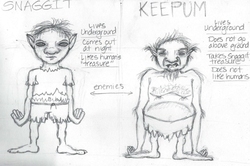 SNAGGIT
Lives
Underground
Comes out
at night
Likes humans
"treasure"
enemies
KEEPUM
Lives
Underground
Does not go
above ground
Takes Snaggit
"treasure"
Does not
like humans